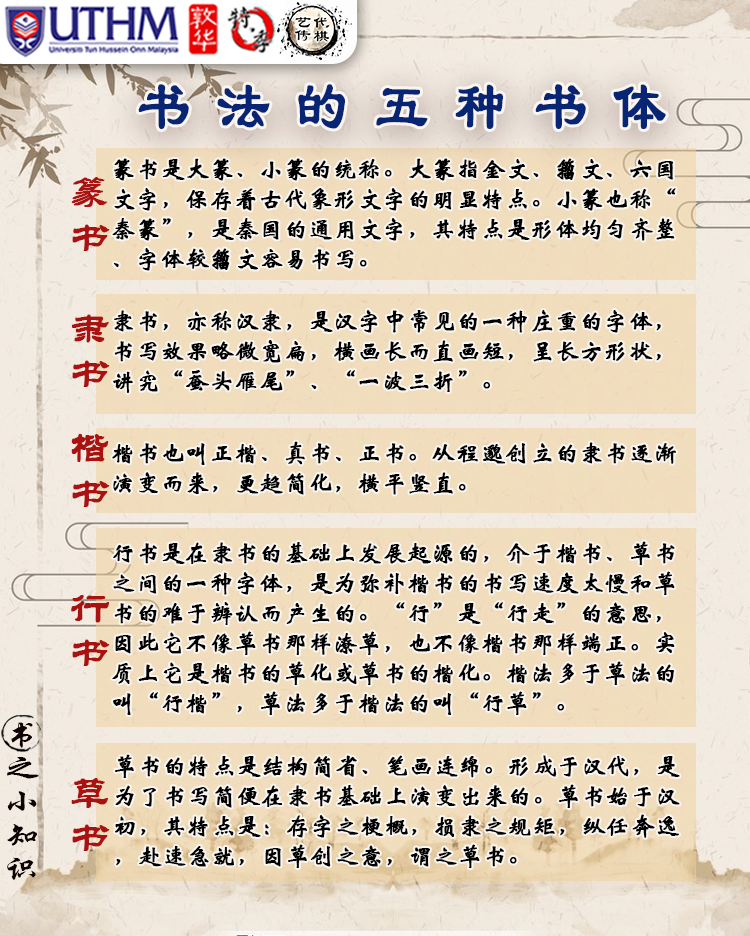 UTHM
Universiti Tun Hussein Onn Malaysia
敦华
艺代
传棋
书法的五种书体
篆书
篆书是大篆、小篆的统称。大篆指金文、籀文、六国
文字，保存着古代象形文字的明显特点。小篆也称“
秦篆”，是秦国的通用文字，其特点是形体均匀齐整
、字体较籀文容易书写。
隶书
隶书，亦称汉隶，是汉字中常见的一种庄重的字体，
书写效果略微宽扁，横画长而直画短，呈长方形状，
讲究“蚕头雁尾”、“一波三折”。
楷书
楷书也叫正楷、真书、正书。从程邈创立的隶书逐渐
演变而来，更趋简化，横平竖直。
行书
行书是在隶书的基础上发展起源的，介于楷书、草书
之间的一种字体，是为弥补楷书的书写速度太慢和草
书的难于辨认而产生的。“行”是“行走”的意思，
因此它不像草书那样潦草，也不像楷书那样端正。实
质上它是楷书的草化或草书的楷化。楷法多于草法的
叫“行楷”，草法多于楷法的叫“行草”。
草书
草书的特点是结构简省、笔画连绵。形成于汉代，是
为了书写简便在隶书基础上演变出来的。草书始于汉
初，其特点是：存字之梗概，损隶之规矩，纵任奔逸
，赴速急就，因草创之意，谓之草书。
书之小知识